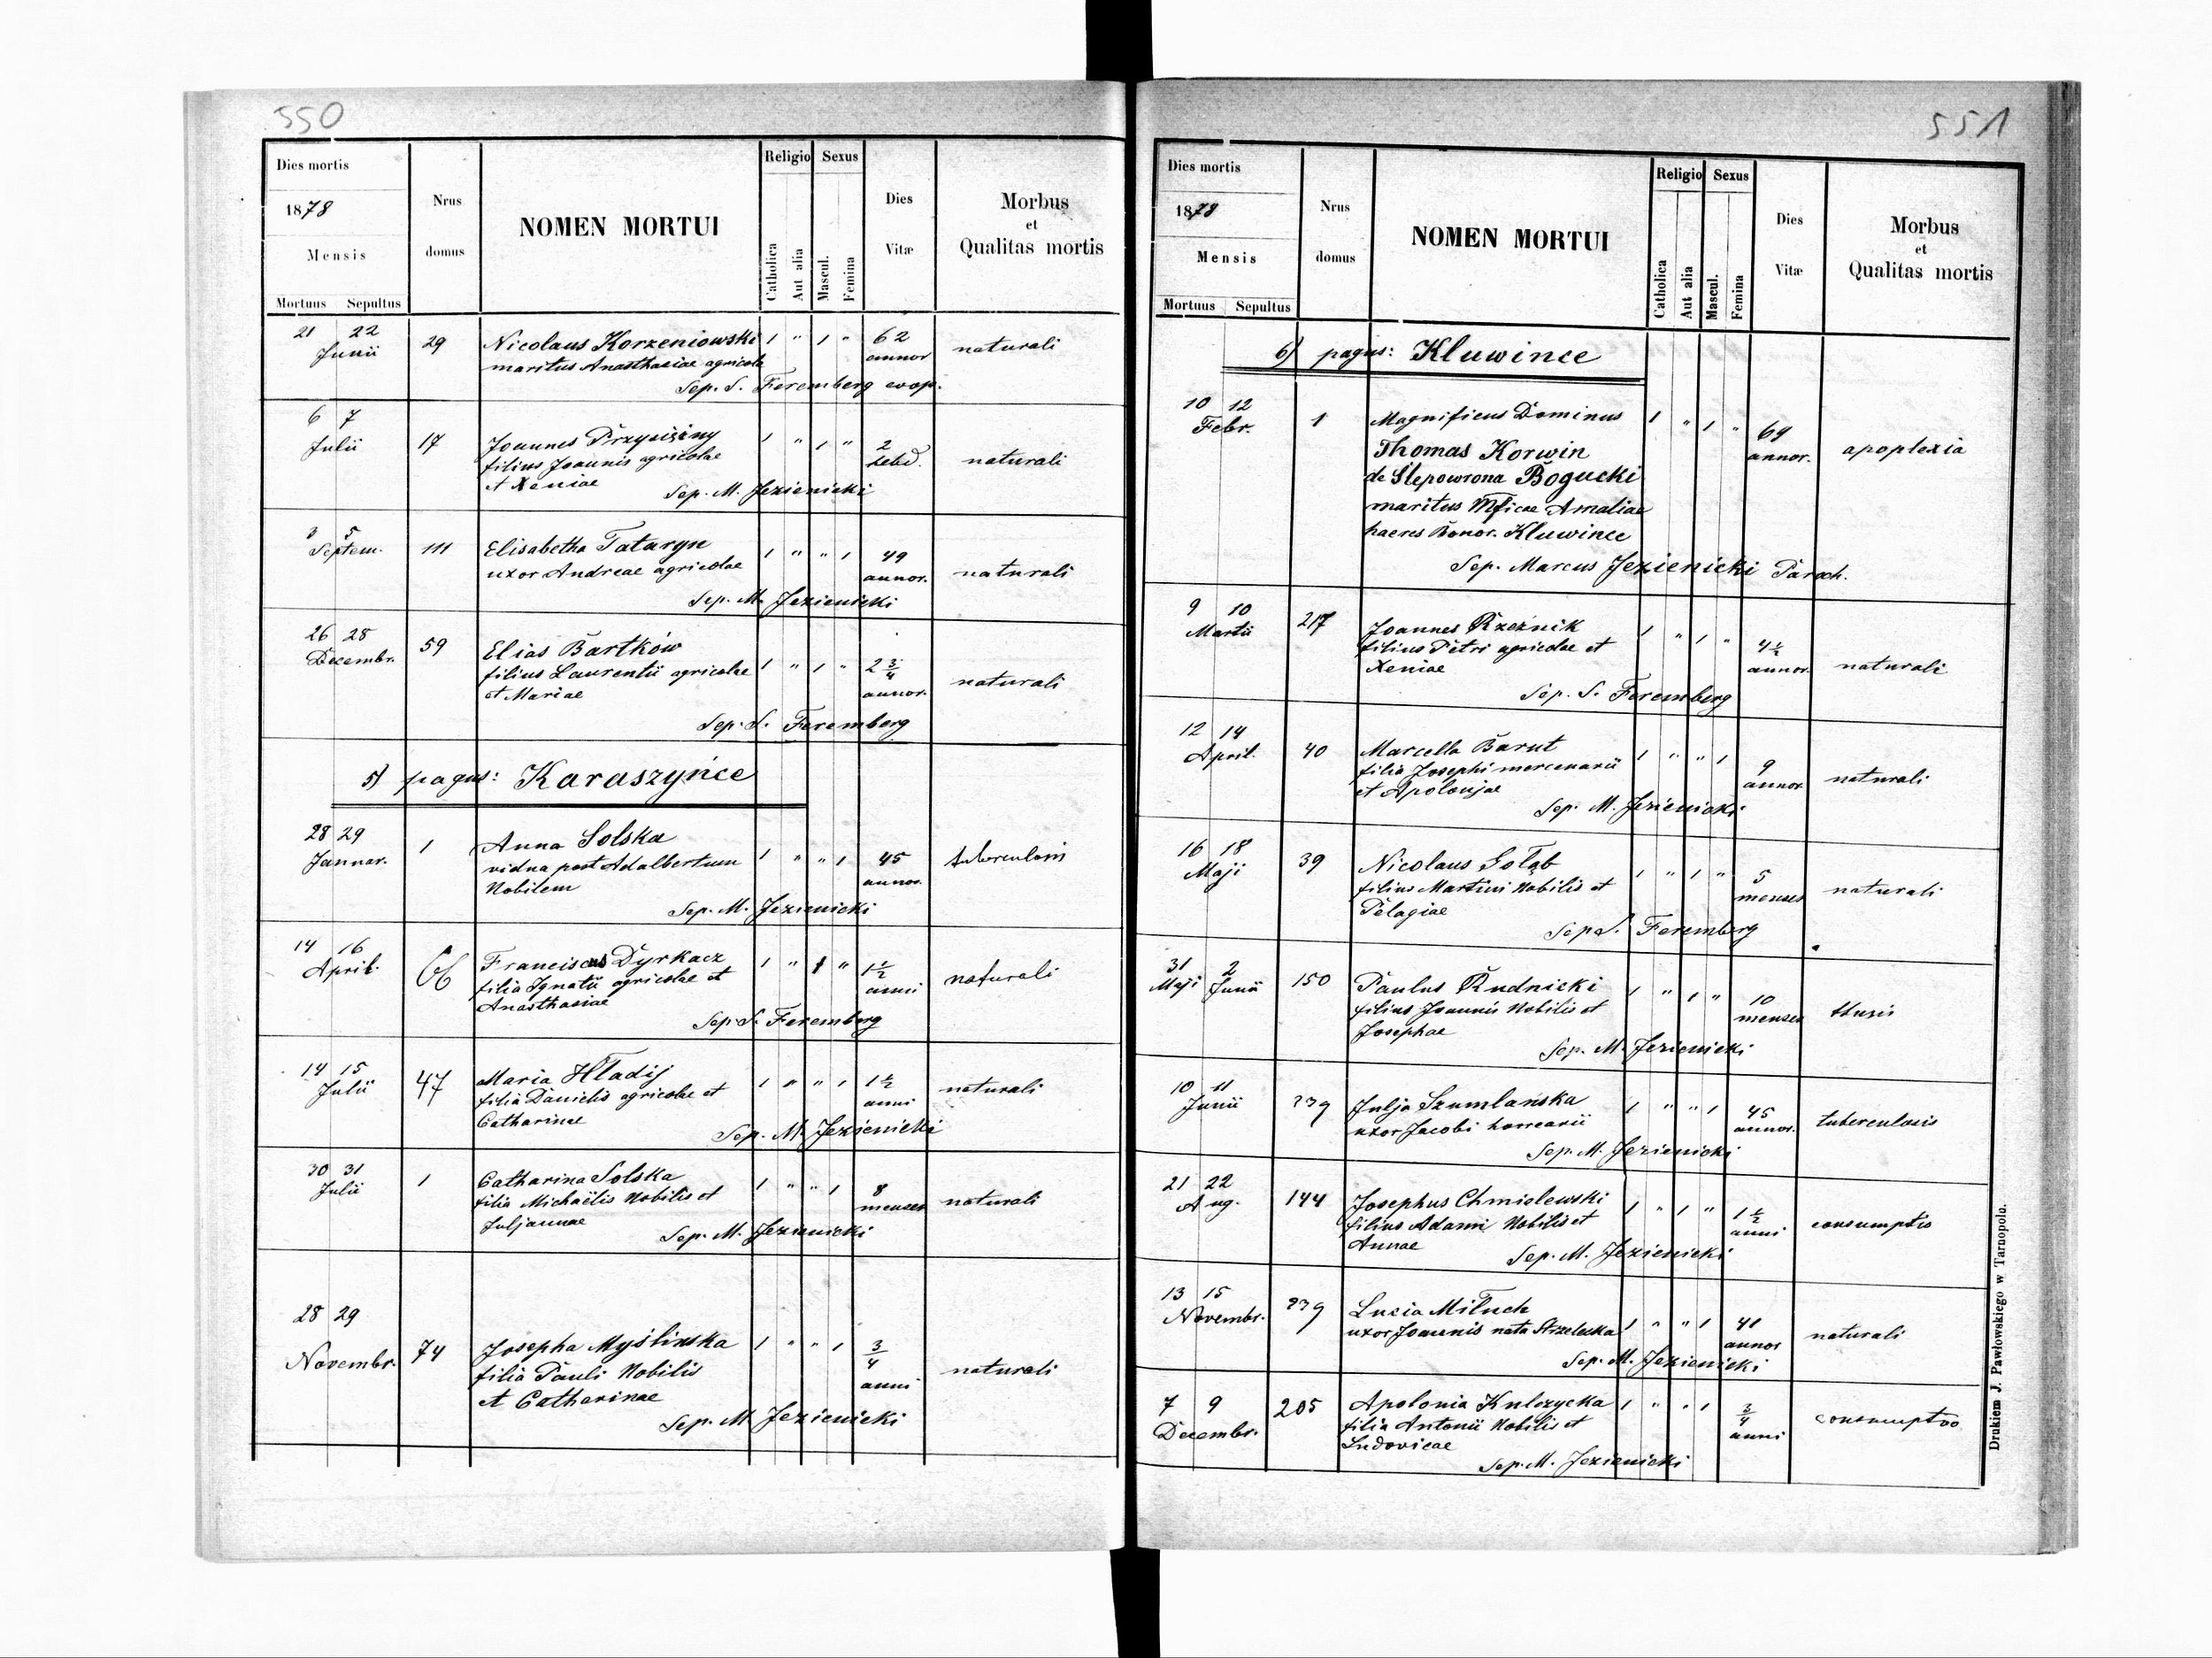 550
Dies mortis
1878
Mensis
Mortuus Sepultus
Nrus domus
NOMEN MORTUI
Religio
Catholica
Aut alia
Sexus
Mascul.
Femina
Dies Vitæ
Morbus et Qualitas mortis
21 22 Junii 29 Nicolaus Korzeniowski 1 " 1 " 62 annor naturali
maritus Anasthasiae agricola
Sep. S. Feremberg coop.
6 7 Julii 17 Joannes Przysiężny 1 " 1 " 2 hebd. naturali
filius Joannis agricolae
et Xeniae
Sep. M. Jezienicki
3 5 Septem. 111 Elisabetha Tataryn 1 " " 1 49 annor. naturali
uxor Andreae agricolae
Sep. M. Jezienicki
26 28 Decembr. 59 Elias Bartków 1 " 1 " 2 3/4 annor. naturali
filius Laurentii agricolae
et Mariae
Sep. S. Feremberg
5) pagus: Karaszyńce
28 29 Januar. 1 Anna Solska 1 " " 1 45 annor. tuberculosis
vidua post Adalbertum
Nobilem
Sep. M. Jezienicki
14 16 April. 66 Franciscus Dyrkacz 1 " 1 " 1 1/2 anni naturali
filia Ignatii agricolae et
Anasthasiae
Sep. S. Feremberg
14 15 Julii 47 Maria Hładij 1 " " 1 1 1/2 anni naturali
filia Danielis agricolae et
Catharinae
Sep. M. Jezienicki
30 31 Julii 1 Catharina Solska 1 " " 1 8 menses naturali
filia Michaëlis Nobilis et
Juljannae
Sep. M. Jezienicki
28 29 Novembr. 74 Josepha Myślinska 1 " " 1 3/4 anni naturali
filia Pauli Nobilis
et Catharinae
Sep. M. Jezienicki
551
Dies mortis
1878
Mensis
Mortuus Sepultus
Nrus domus
NOMEN MORTUI
Religio
Catholica
Aut alia
Sexus
Mascul.
Femina
Dies Vitæ
Morbus et Qualitas mortis
6) pagus: Kluwince
10 12 Febr. 1 Magnificus Dominus 1 " 1 " 69 annor. apoplexia
Thomas Korwin
de Ślepowrona Bogucki
maritus Mficae Amaliae
haeres Bonor. Kluwince
Sep. Marcus Jezienicki Paroch.
9 10 Martii 217 Joannes Rzeżnik 1 " 1 " 4 1/2 annor. naturali
filius Petri agricolae et
Xeniae
Sep. S. Feremberg
12 14 April. 40 Marcella Barut 1 " " 1 9 annor naturali
filia Josephi mercenarii
et Apolonjae
Sep. M. Jezienicki
16 18 Maji 39 Nicolaus Gołąb 1 " 1 " 5 menses naturali
filius Martini Nobilis et
Pelagiae
Sep S. Feremberg
31 Maji 2 Junii 150 Paulus Rudnicki 1 " 1 " 10 menses
filius Joannis Nobilis et
Josephae
Sep. M. Jezienicki
10 11 Junii 239 Julja Szumlańska 1 " " 1 45 annor. tuberculosis
uxor Jacobi horrearii
Sep. M. Jezienicki
21 22 Aug. 144 Josephus Chmielewski 1 " 1 " 1 1/2 anni consumptio
filius Adami Nobilis et
Annae
Sep. M. Jezienicki
13 15 Novembr. 239 Lucia Miłuch 1 " " 1 41 annor naturali
uxor Joannis nata Strzelecka
Sep. M. Jezienicki
7 9 Decembr. 205 Apolonia Kulczycka 1 " " 1 3/4 anni consumptio
filia Antonii Nobilis et
Ludovicae
Sep. M. Jezienicki
Drukiem J. Pawłowskiego w Tarnopolu.